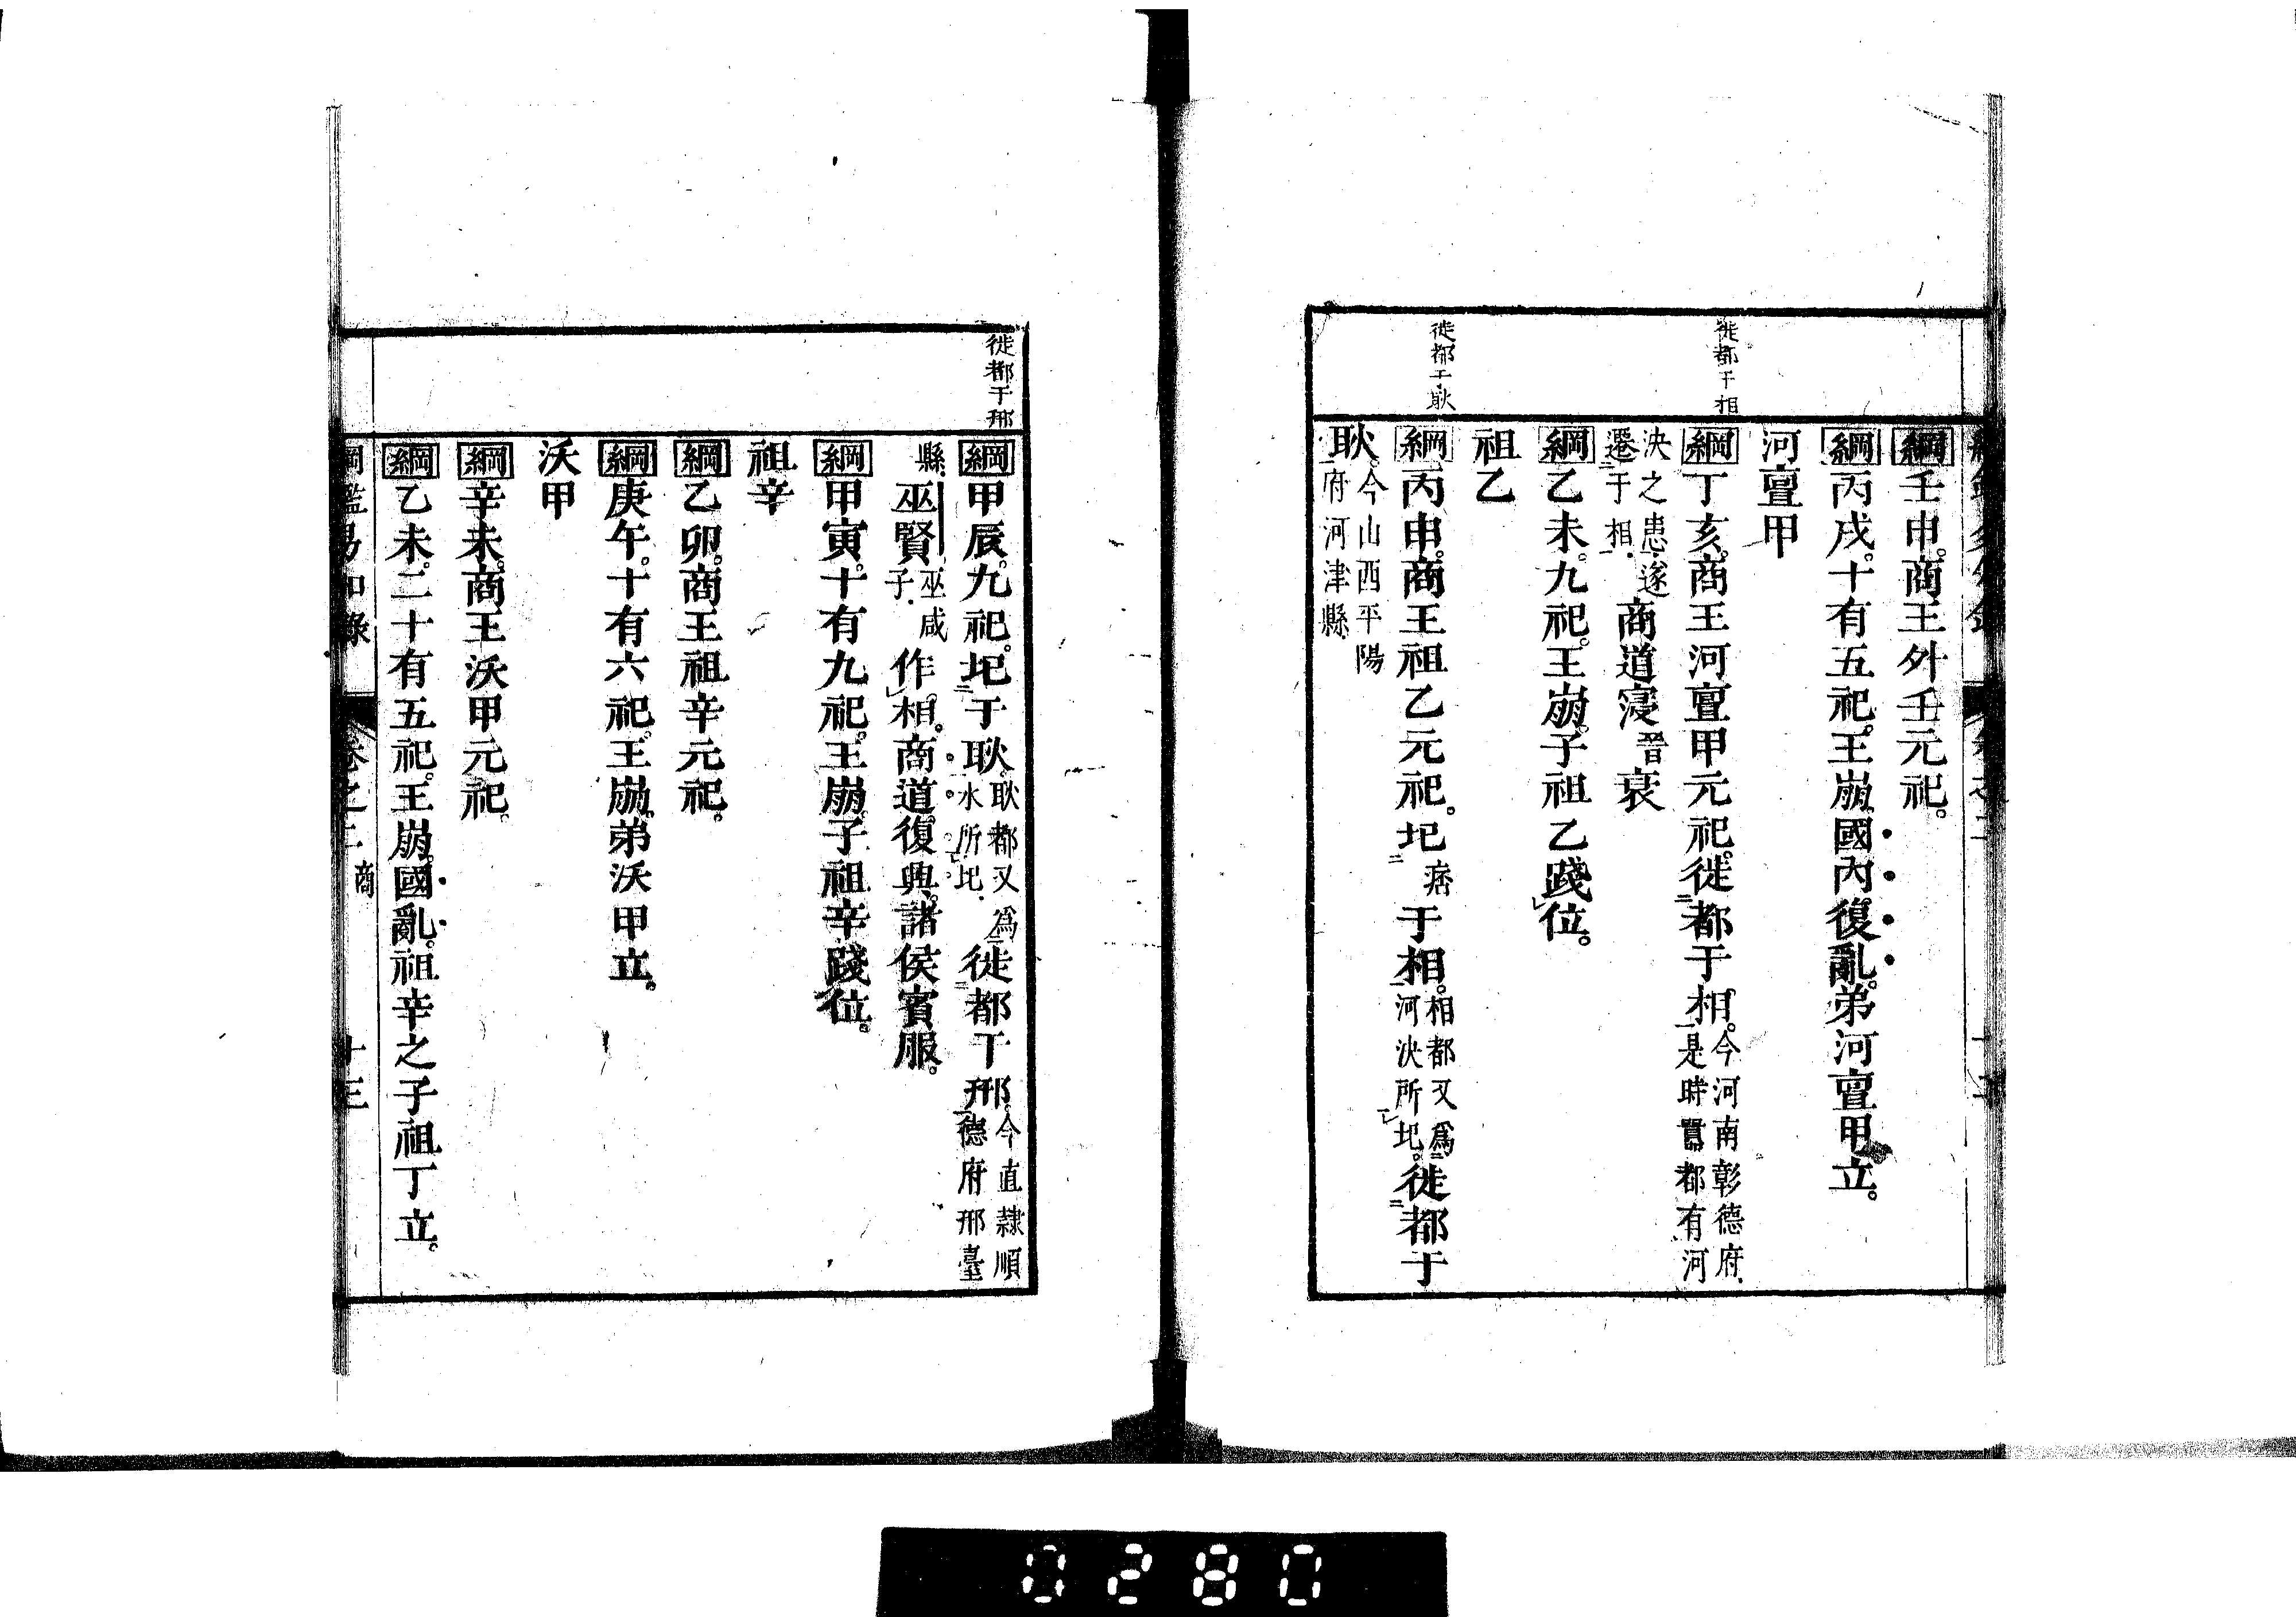 徙都于相
徙都于耿
綱壬申。商王外壬元祀。
綱丙戌。十有五祀。王崩。國內復亂。弟河亶甲立。
河亶甲
綱丁亥。商王河亶甲元祀。徙都于相。今河南彰德府.是時囂都有河
決之患.遂遷于相.商道寖晉衰
綱乙未。九祀。王崩。子祖乙踐位。
祖乙
綱丙申。商王祖乙元祀。圯痞于相。相都又爲河決所圯。徙都于
耿。今山西平陽府河津縣.
徙都于邢
綱甲辰。九祀。圯于耿。耿都又爲水所圯.徙都于邢。今直隸順德府邢臺
縣.巫賢巫咸子.作相。商道復興。諸侯賓服。
綱甲寅。十有九祀。王崩。子祖辛踐位。
祖辛
綱乙卯。商王祖辛元祀。
綱庚午。十有六祀。王崩。弟沃甲立。
沃甲
綱辛未。商王沃甲元祀。
綱乙未。二十有五祀。王崩。國亂。祖辛之子祖丁立。
綱鑑易知錄 卷之二 商 十三
0280